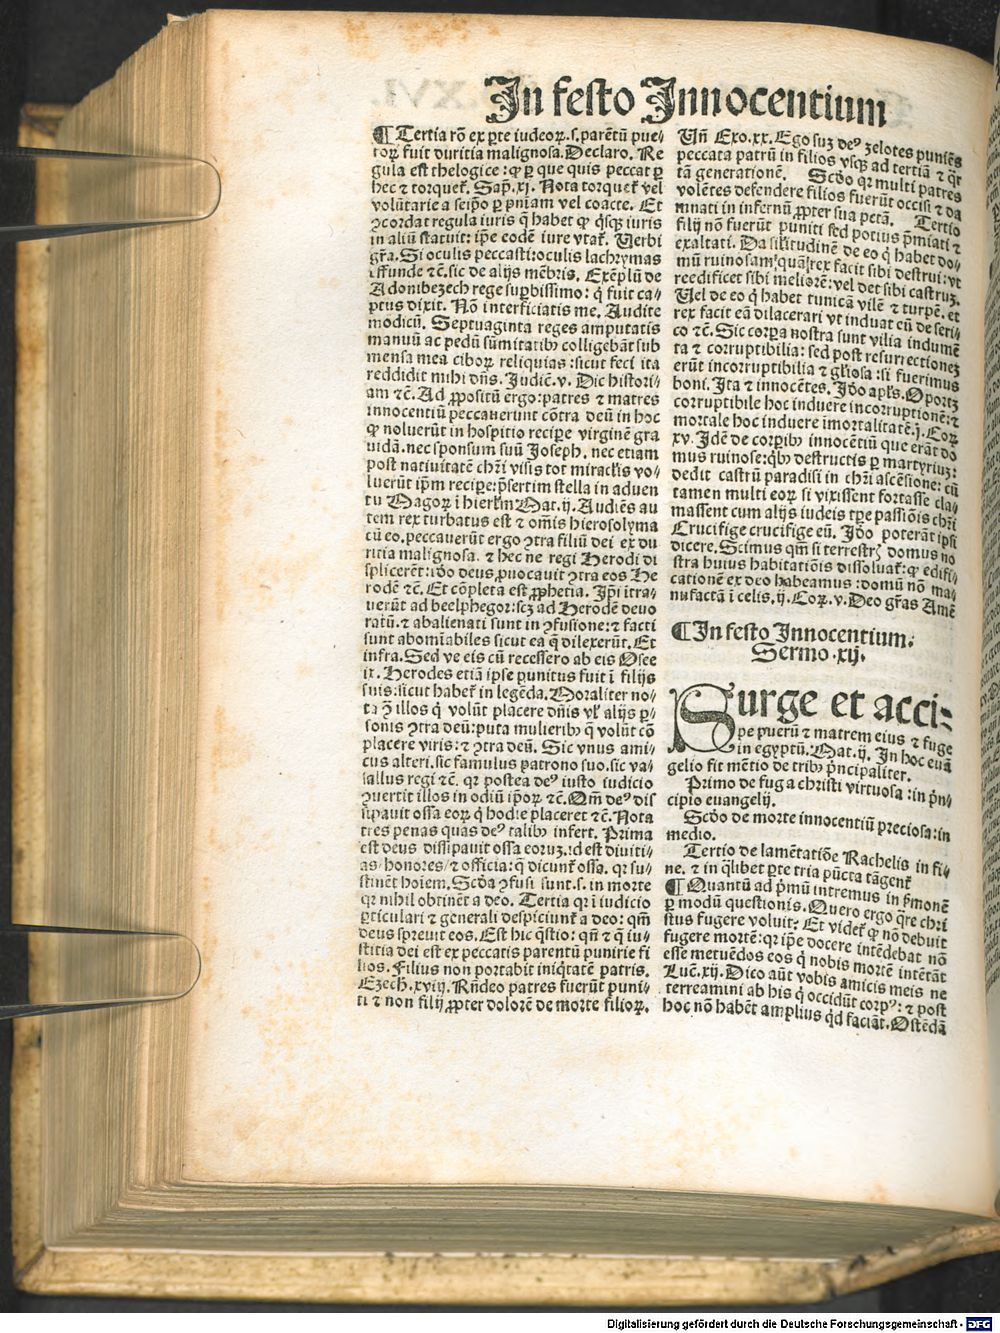 In festo Innocentium
¶ Tertia rõ ex ꝑte iudeoꝝ.s.parẽtũ pue⸗
roꝝ fuit duritia malignosa. Declaro. Re
gula est thelogice: ꝙ ꝑ que quis peccat ꝑ
hec ⁊ torquet᷑. Sap̃.xi. Nota torquet᷑ vel
volũtarie a seip̃o ꝑ pñiam vel coacte. Et
ꝯcordat regula iuris q̃ habet ꝙ q̇sqꝫ iuris
in aliũ statuit: ip̃e eodẽ iure vtat᷑. Verbi
gr̃a. Si oculis peccasti: oculis lachrymas
effunde ⁊c̃. sic de alijs mẽbris. Exẽplũ de
Adonibezech rege suꝑbissimo: q̇ fuit ca⸗
ptus dixit. Nõ interficiatis me. Audite
modicũ. Septuaginta reges amputatis
manuũ ac pedũ sũmitatibꝰ colligebãt sub
mensa mea ciboꝝ reliquias: sicut feci ita
reddidit mihi dñs. Judic̃.v. Dic histori⸗
am ⁊c̃. Ad ꝓpositũ ergo: patres ⁊ matres
innocentiũ peccauerunt cõtra deũ in hoc
ꝙ noluerũt in hospitio recipe virginẽ gra
uidã. nec sponsum suũ Joseph. nec etiam
post natiuitatẽ chr̃i visis tot miracl̃is vo⸗
luerũt ip̃m recipe: p̃sertim stella in aduen
tu Magoꝝ ĩ hierl̃m Mat.ij. Audiẽs au
tem rex turbatus est ⁊ om̃is hierosolyma
cũ eo. peccauerũt ergo ꝯtra filiũ dei ex du
ritia malignosa. ⁊ hec ne regi Herodi di
splicerẽt: iđo deus ꝓuocauit ꝯtra eos He
rodẽ ⁊c̃. Et cõpleta est ꝓphetia. Ip̃i itra⸗
uerũt ad beelphegor: scꝫ ad Herodẽ deuo
ratũ. ⁊ abalienati sunt in ꝯfusione: ⁊ facti
sunt abominabiles sicut ea q̃ dilexerũt. Et
infra. Sed ve eis cũ recessero ab eis Osee
ix. Herodes etiã ipse punitus fuit ĩ filijs
suis: sicut habet᷑ in legẽda. Moraliter no⸗
ta ꝯ̃ illos q̇ volũt placere dñis vl̃ alijs ꝑ⸗
sonis ꝯtra deũ: puta mulieribꝰ q̃ volũt cõ
placere viris: ⁊ ꝯtra deũ. Sic vnus ami⸗
cus alteri. sic famulus patrono suo. sic va⸗
sallus regi ⁊c̃. qꝛ postea deꝰ iusto iudicio
ꝯuertit illos in odiũ ip̃oꝝ ⁊c̃. Qm̃ deꝰ dis
sipauit ossa eoꝝ q̇ hodie placeret ⁊c̃. Nota
tres penas quas deꝰ talibꝰ infert. Prima
est deus dissipauit ossa eoruꝫ. id est diuiti⸗
as/ honores/ ⁊ officia: q̃ dicunt᷑ ossa. qꝛ su⸗
stinẽt hoĩem. Scđa ꝯfusi sunt.s. in morte
qꝛ nihil obtinẽt a deo. Tertia qꝛ ĩ iudicio
ꝑticulari ⁊ generali despiciunt᷑ a deo: qm̃
deus spreuit eos. Est hic q̃stio: qñ ⁊ q̃ iu⸗
stitia dei est ex peccatis parentũ punire fi
lios. Filius non portabit iniq̇tatẽ patris.
Ezech.xviij. Rñdeo patres fuerũt puni⸗
ti ⁊ non filij ꝓpter dolorẽ de morte filioꝝ.
Vñ Exo.xx. Ego suꝫ deꝰ zelotes puniẽs
peccata patrũ in filios vsqꝫ ad tertiã ⁊ q̃r
tã generationẽ. Scđo qꝛ multi patres
volẽtes defendere filios fuerũt occisi ⁊ da
mnati in infernũ ꝓpter sua pctã. Tertio
filij nõ fuerũt puniti sed potius p̃miati ⁊
exaltati. Da sil̃itudinẽ de eo q̇ habet do⸗
mũ ruinosam/ quã rex facit sibi destrui: vt
reedificet sibi meliorẽ: vel det sibi castruꝫ.
Vel de eo q̇ habet tunicã vilẽ ⁊ turpẽ. et
rex facit eã dilacerari vt induat cũ de seri⸗
co ⁊c̃. Sic corꝑa nostra sunt vilia indumẽ
ta ⁊ corruptibilia: sed post resurrectioneꝫ
erũt incorruptibilia ⁊ gl̃iosa: si fuerimus
boni. Ita ⁊ innocẽtes. Iđo apl̃s. Oportꝫ
corruptibile hoc induere incorruptionẽ: ⁊
mortale hoc induere imortalitatẽ.j. Coꝝ.
xv. Idẽ de corꝑibꝰ innocẽtiũ que erãt do
mus ruinose: q̇bꝰ destructis ꝑ martyriuꝫ:
dedit castrũ paradisi in chr̃i ascẽsione: cũ
tamen multi eoꝝ si vixissent fortasse cla⸗
massent cum alijs iudeis tꝑe passiõis chr̃i
Crucifige crucifige eũ. Iđo poterãt ipsi
dicere. Scimus qm̃ si terrestrꝭ domus no
stra huius habitatiõis dissoluat᷑: ꝙ edifi⸗
cationẽ ex deo habeamus: domũ nõ ma⸗
nufactã ĩ celis. ij. Coꝝ. v. Deo gr̃as Amẽ
¶ In festo Innocentium.
Sermo .xij.
Surge et acci⸗
pe puerũ ⁊ matrem eius ⁊ fuge
in egyptũ. Mat.ij. In hoc euã
gelio fit mẽtio de tribꝰ p̃ncipaliter.
Primo de fuga christi virtuosa: in p̃n⸗
cipio euangelij.
Scđo de morte innocentiũ preciosa: in
medio.
Tertio de lamẽtatiõe Rachelis in fi⸗
ne. ⁊ in q̃libet ꝑte tria pũcta tãgent᷑
¶ Quantũ ad p̃mũ intremus in ẜmonẽ
ꝑ modũ questionis. Quero ergo q̃re chri
stus fugere voluit: Et videt᷑ ꝙ nõ debuit
fugere mortẽ: qꝛ ip̃e docere intẽdebat nõ
esse metuẽdos eos q̇ nobis mortẽ intẽtãt
Luc̃.xij. Dico aũt vobis amicis meis ne
terreamini ab his q̇ occidũt corpꝰ: ⁊ post
hoc nõ habẽt amplius q̇d faciãt. Ostẽdã
Digitalisierung gefördert durch die Deutsche Forschungsgemeinschaft - DFG